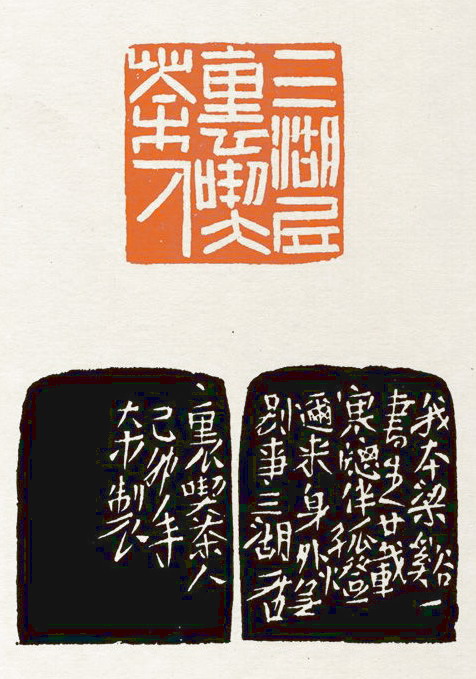 三湖居
裏喫
茶人
我本梁谿一
書生廿載
寒窻伴孤燈
邇來身外無
别事三湖居
裏喫茶人
己卯年
製